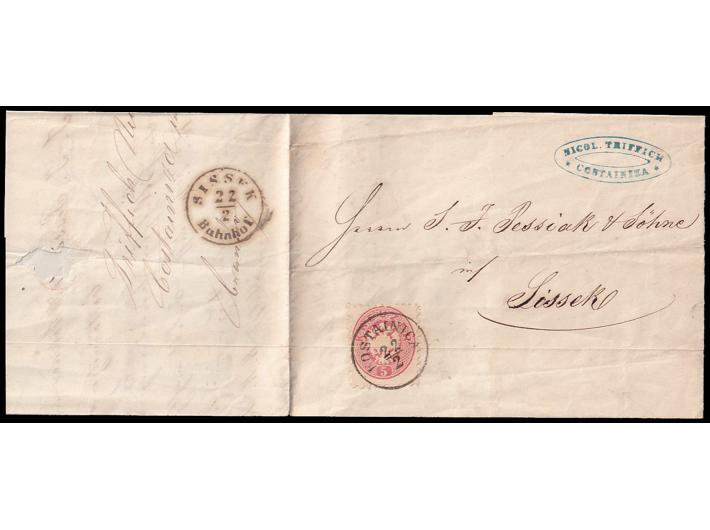 NICOL. TRIFFICH
* COSTAINIZA *
Herrn S. J. Pessiak & Söhne
in/
Sissek
KOSTAINICA
22/2
5
SISSEK
22/2
Bahnhof
Triffich
Costainiza